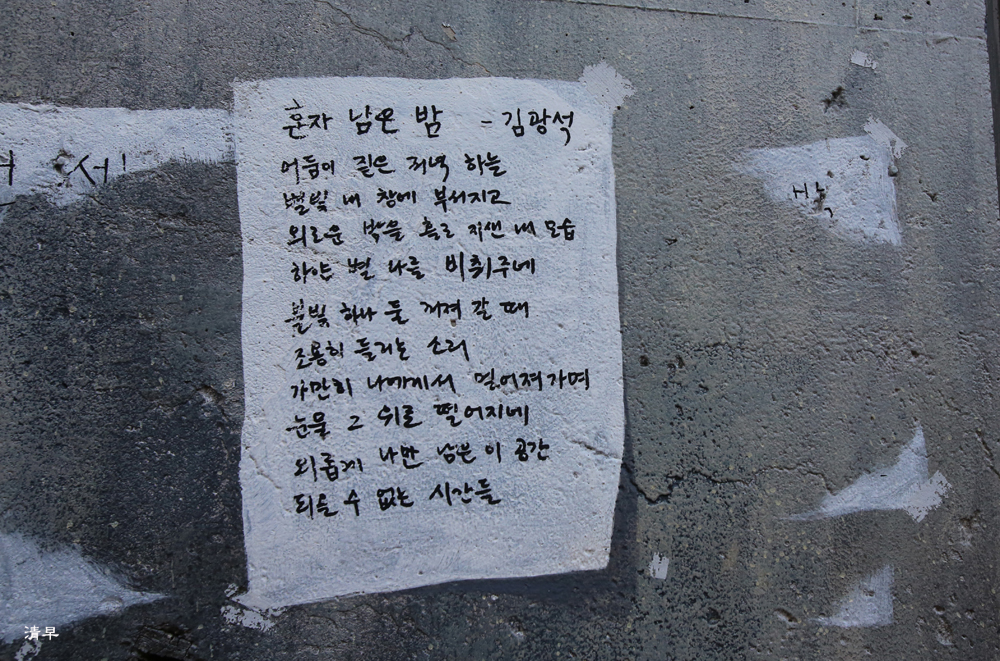 혼자 남은 밤 - 김광석
어둠이 짙은 저녁 하늘
별빛 내 창에 부서지고
외로운 밤을 홀로 지샌 내 모습
하얀 별 나를 비춰주네
불빛 하나 둘 꺼져 갈 때
조용히 들리는 소리
가만히 나에게서 멀어져가며
눈물 그 위로 떨어지네
외롭게 나만 남은 이 공간
되올 수 없는 시간들
清早